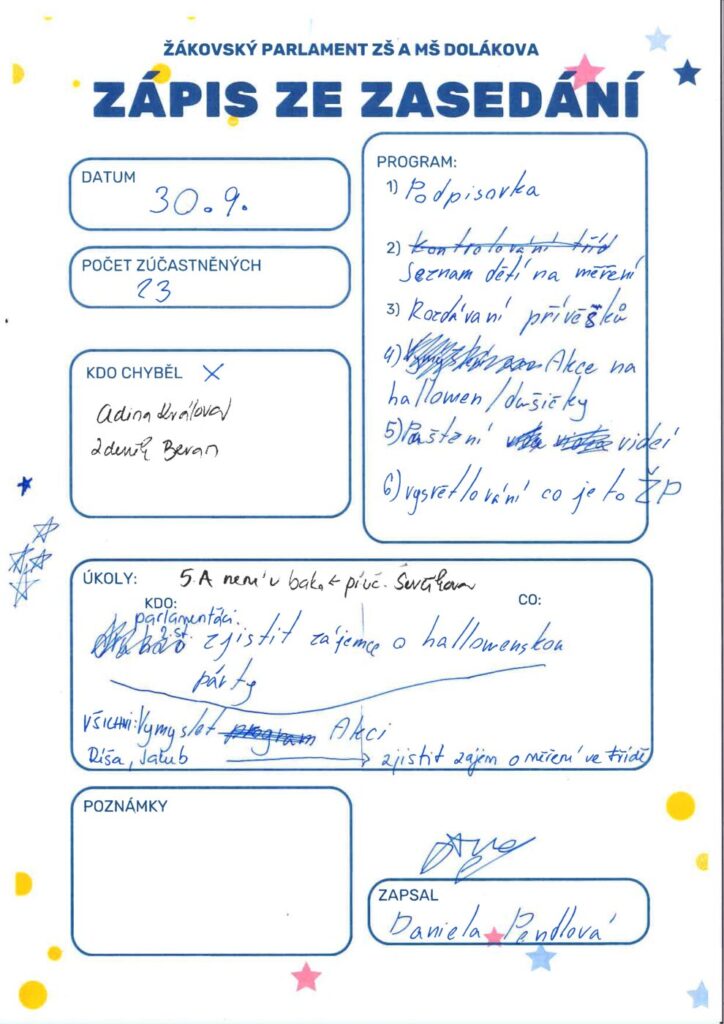 ŽÁKOVSKÝ PARLAMENT ZŠ A MŠ DOLÁKOVA
ZÁPIS ZE ZASEDÁNÍ
DATUM
30.9.
POČET ZÚČASTNĚNÝCH
23
KDO CHYBĚL X
Adina Králová
Zdeněk Beran
PROGRAM:
1) Podpisovka
2) Kontrolování tříd
Seznam dětí na měření
3) Rozdávaní přívěšků
4) Akce na
hallowen/dušičky
5) Pouštění videí
6) vysvětlování co je to ŽP
ÚKOLY: 5.A není v baka
KDO:
CO:
parlamentáci
2.st. zjistit zájemce o hallowenskou
párty
VŠICHNI: Vymyslet program Akci
Ríša, Jakub zjistit zájem o měření ve třídě
POZNÁMKY
ZAPSAL
Daniela Pendlová